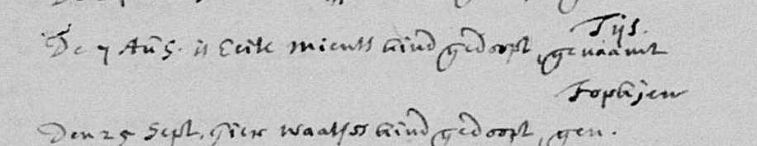 Tijs.
De 7 Aug. is Eeite mients kind gedoopt, genaamt
Fopkjen
Den 25 Sept. hier waatses kind gedoopt, gen.